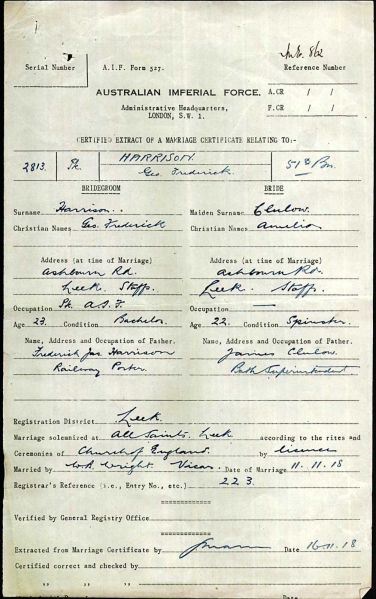 Serial Number
A.I.F. Form 527.
Reference Number
AUSTRALIAN IMPERIAL FORCE.
A.CR / /
F.CR / /
Administrative Headquarters,
LONDON, S.W. 1.
CERTIFIED EXTRACT OF A MARRIAGE CERTIFICATE RELATING TO:-
2813. Pte. HARRISON. 51st Bn.
Geo. Frederick
BRIDEGROOM BRIDE
Surname Harrison. Maiden Surname Clulow.
Christian Names Geo. Frederick Christian Names Amelia
Address (at time of Marriage) Address (at time of Marriage)
Ashbourn Rd. Ashbourn Rd.
Leek Staffs. Leek. Staffs.
Occupation Pte. A.I.F. Occupation —
Age 23. Condition Bachelor Age 22. Condition Spinster.
Name, Address and Occupation of Father. Name, Address and Occupation of Father.
Frederick Jas. Harrison James Clulow.
Railway Porter. Bath Superintendent
Registration District Leek.
Marriage solemnized at All Saints. Leek according to the rites and
Ceremonies of Church of England. by licence
Married by W.B. Wright. Vicar. Date of Marriage 11.11.18
Registrar's Reference (i.e., Entry No., etc.) 223.
============
Verified by General Registry Office
============
Extracted from Marriage Certificate by Date 16.11.18
Certified correct and checked by
" " " Date